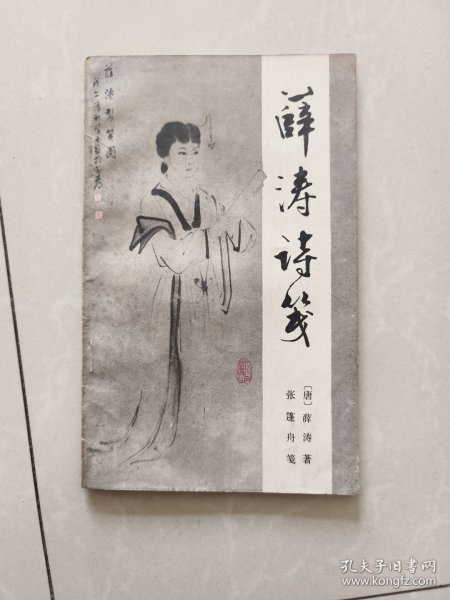 薛涛诗笺
〔唐〕薛涛著
张篷舟笺
薛涛制笺图
孔夫子旧书网
www.kongfz.com